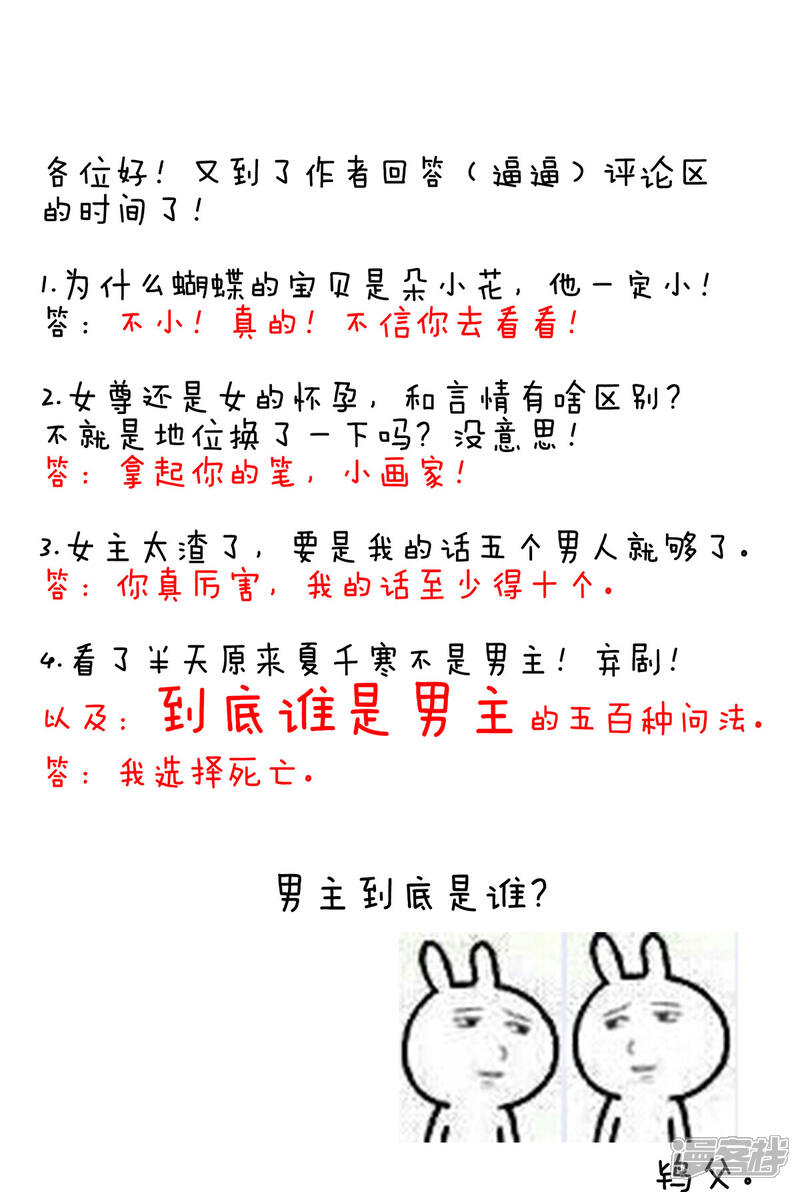 各位好！又到了作者回答（逼逼）评论区
的时间了！
1.为什么蝴蝶的宝贝是朵小花，他一定小！
答：不小！真的！不信你去看看！
2.女尊还是女的怀孕，和言情有啥区别？
不就是地位换了一下吗？没意思！
答：拿起你的笔，小画家！
3.女主太渣了，要是我的话五个男人就够了。
答：你真厉害，我的话至少得十个。
4.看了半天原来夏千寒不是男主！弃剧！
以及：到底谁是男主的五百种问法。
答：我选择死亡。
男主到底是谁？
鸨父。
漫客栈